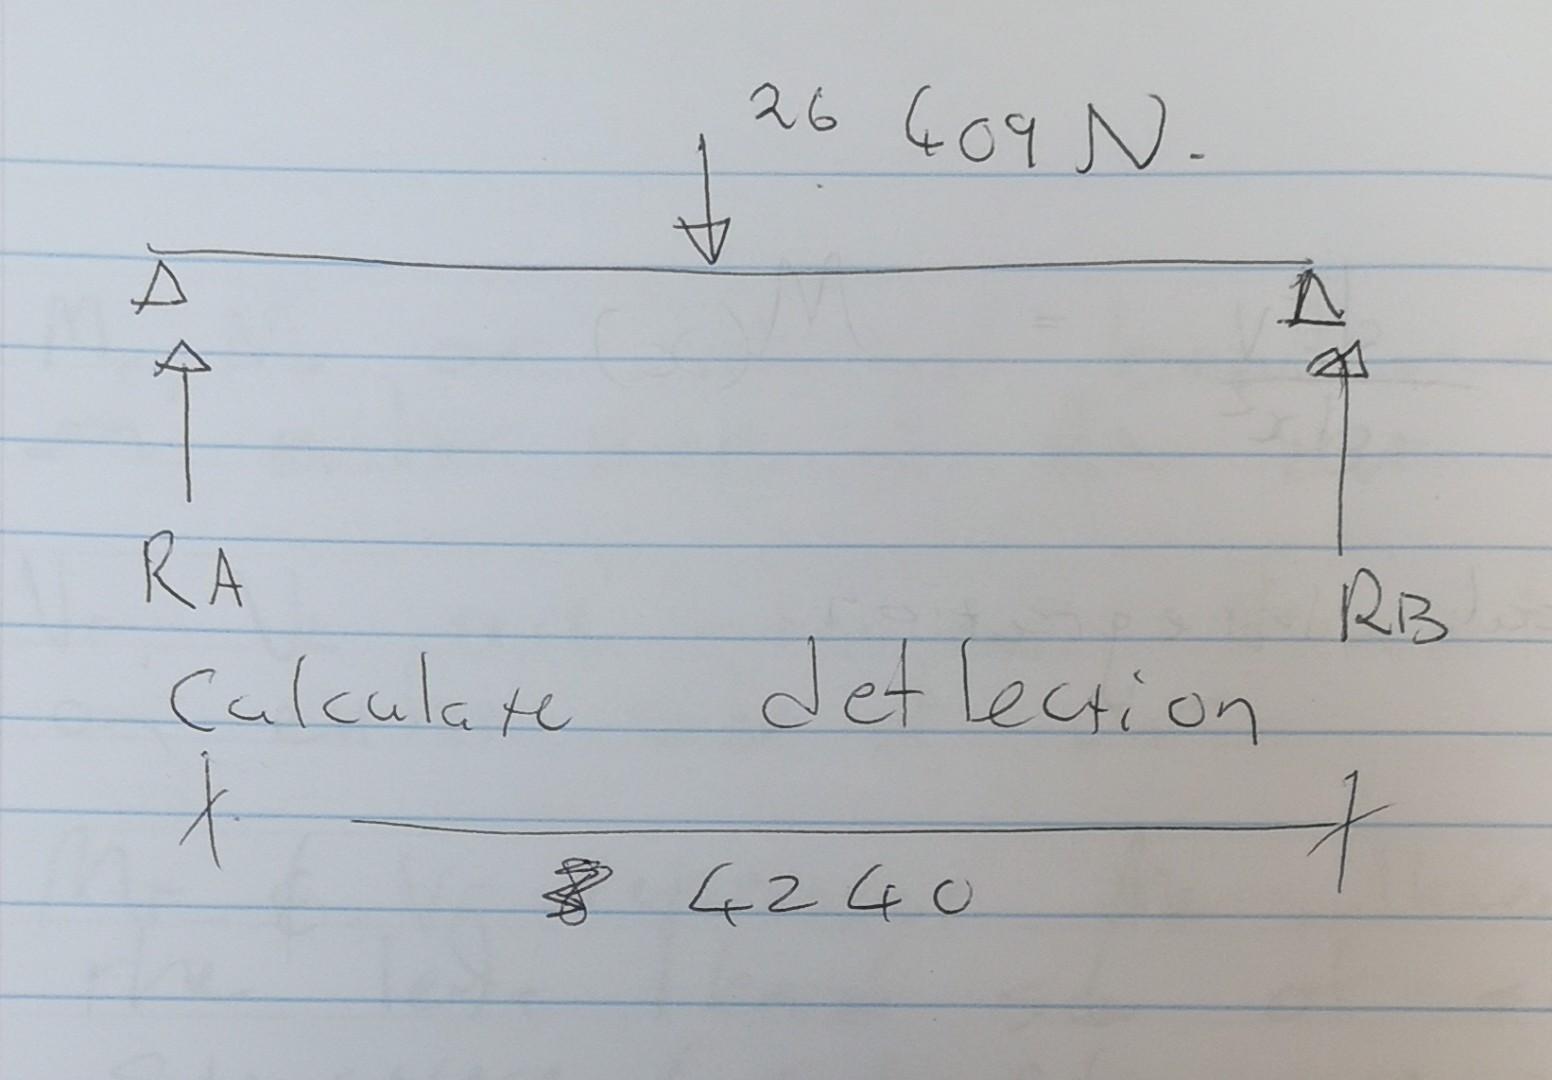 26 409 N.
RA
RB
Calculate deflection
4240